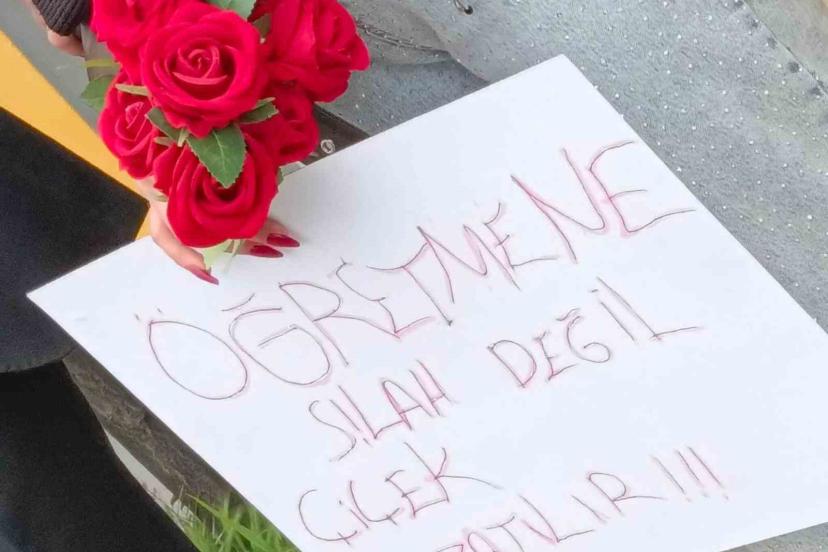 ÖĞRETMENE
SİLAH DEĞİL
ÇİÇEK
UZATILIR!!!